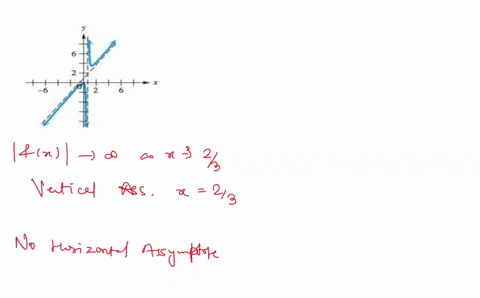 y
6
2
-6 0 2 6 x
|f(x)| → ∞ as x → 2/3
Vertical Ass. x = 2/3
No Horizontal Assymptote